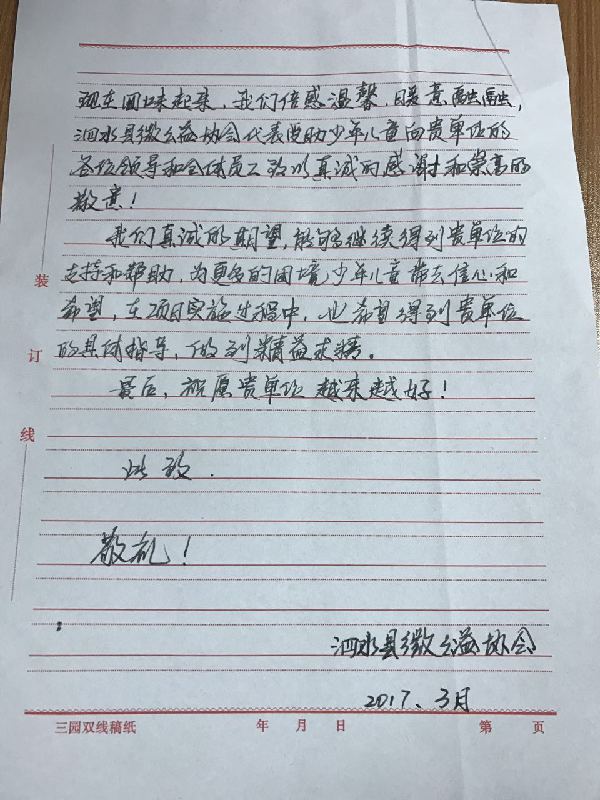 现在回味起来，我们倍感温馨，暖意融融，
泗水县微公益协会代表受助少年儿童向贵单位的
各位领导和全体员工致以真诚的感谢和崇高的
敬意！
我们真诚的期望，能够继续得到贵单位的
支持和帮助，为更多的困境少年儿童带去信心和
希望，在项目实施过程中，也希望得到贵单位
的具体指导，做到精益求精。
最后，祝愿贵单位越来越好！
此致.
敬礼！
泗水县微公益协会
2017、3月
装
订
线
三园双线稿纸 年 月 日 第 页